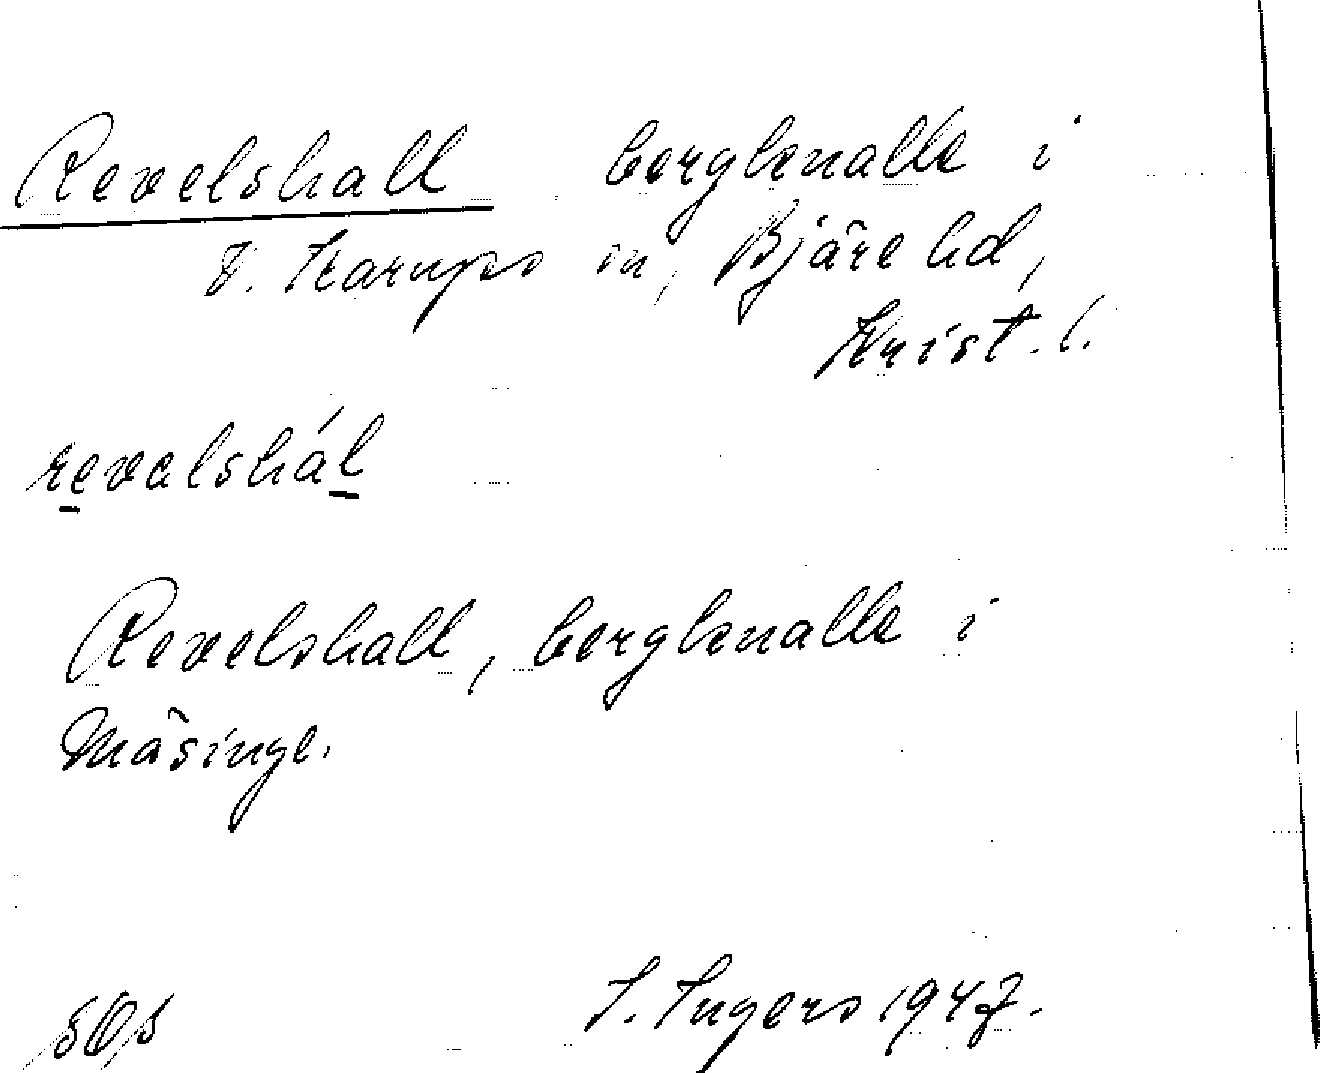 Revelshall bergknalle i
V. Karups sn, Bjäre hd,
Krist. l.
revalshál
Revelshall, bergknalle i
Mäsinge.
I. Ingers 1947.